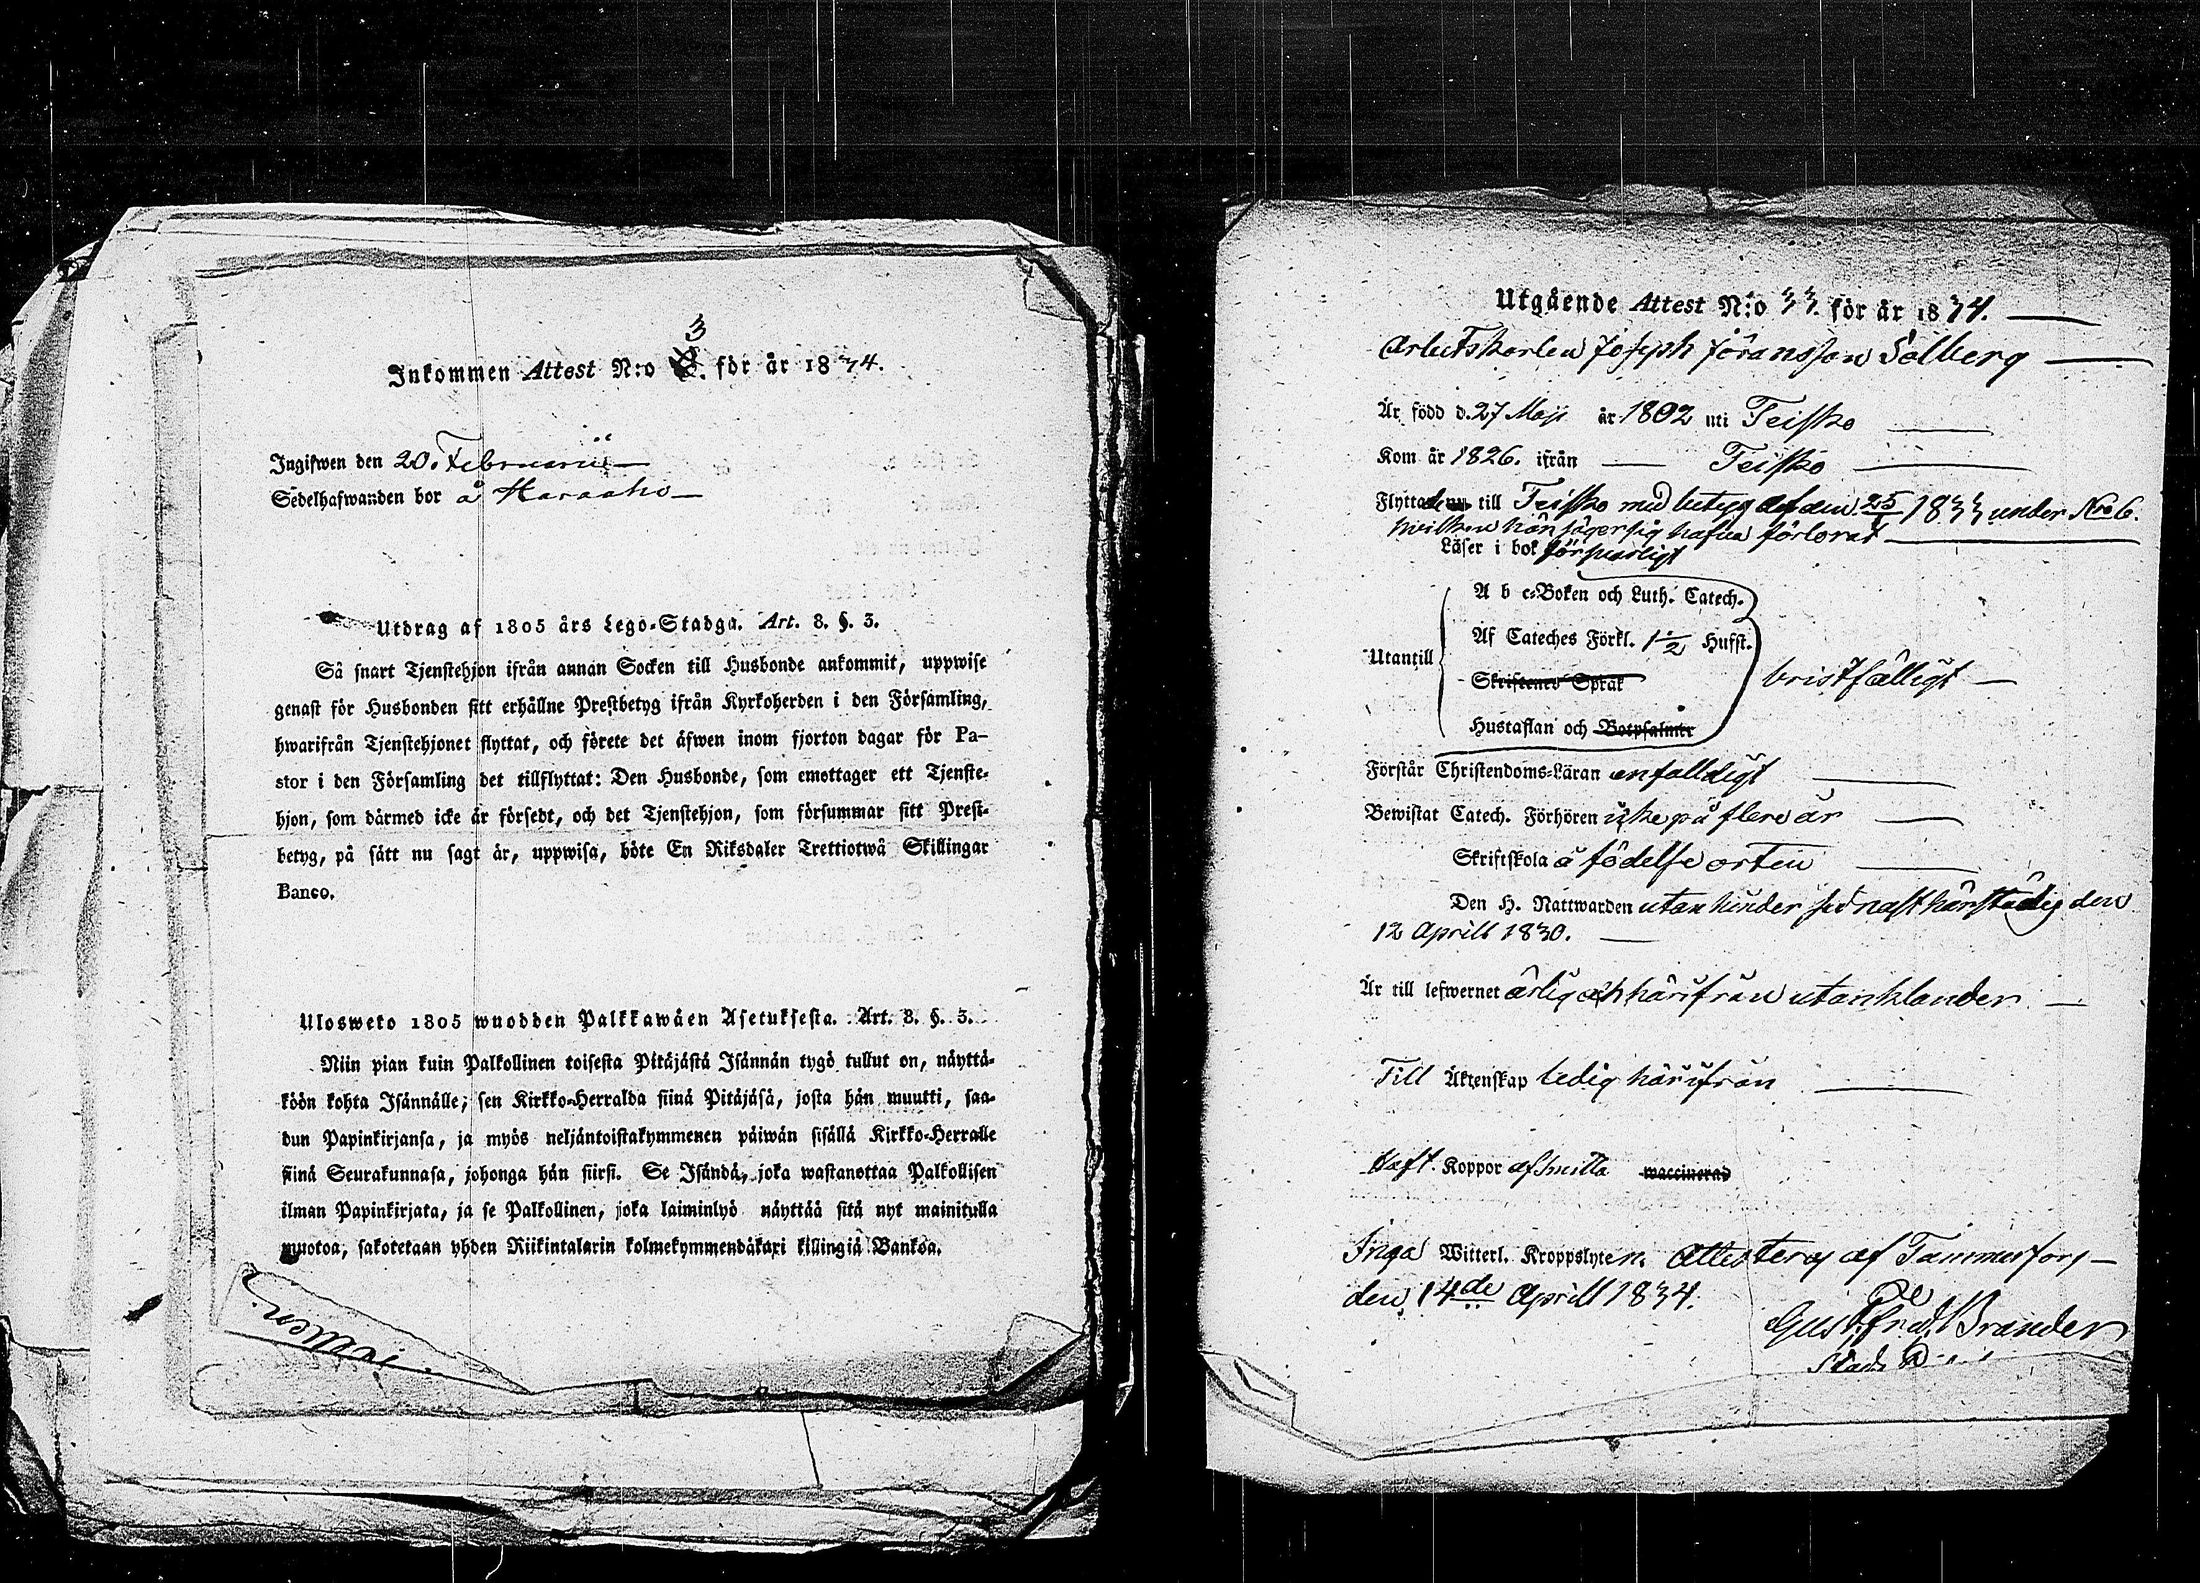 Inkommen Attest N:o 3. för år 1834.
Ingifwen den 20. Februarii
Sedelhafwanden bor å Haraaho
Utdrag af 1805 års Lego-Stadga. Art. 8. §. 3.
Så snart Tjenstehjon ifrån annan Socken till Husbonde ankommit, uppwise
genast för Husbonden sitt erhållne Prestbetyg ifrån Kyrkoherden i den Församling,
hwarifrån Tjenstehjonet flyttat, och förete det äfwen inom fjorton dagar för Pa-
stor i den Församling det tillflyttat: Den Husbonde, som emottager ett Tjenste-
hjon, som därmed icke är försedt, och det Tjenstehjon, som försummar sitt Prest-
betyg, på sätt nu sagt är, uppwisa, böte En Riksdaler Trettiotwå Skillingar
Banco.
Ulosweto 1805 wuodden Palkkawäen Asetuksesta. Art. 8. §. 3.
Niin pian kuin Palkollinen toisesta Pitäjästä Isännän tygö tullut on, näyttä-
köön kohta Isännälle, sen Kirkko-Herralda siinä Pitäjäsä, josta hän muutti, saa-
dun Papinkirjansa, ja myös neljäntoistakymmenen päiwän sisällä Kirkko-Herralle
siinä Seurakunnasa, johonga hän siirsi. Se Isändä, joka wastanottaa Palkollisen
ilman Papinkirjata, ja se Palkollinen, joka laiminlyö näyttää sitä nyt mainitulla
muotoa, sakotetaan yhden Riikintalarin kolmekymmendäkaxi killingiä Bankoa.
Utgående Attest N:o 33. för år 1834.
Arbetskarlen Joseph Jöransson Solberg
Är född d. 27 Maji år 1802 uti Teisko
Kom år 1826. ifrån Teisko
Flyttade till Teisko med betyg af den 25/1 1833 under No 6.
hvilken han säger sig hafva förlorat
Läser i bok försvarligt
A b c-Boken och Luth. Catech.
Af Cateches Förkl. 1 1/2 Hufst.
Utantill
Skriftenes Språk
bristfälligt
Hustaflan och Botpsalmer
Förstår Christendoms-Läran enfalldigt
Bewistat Catech. Förhören icke på flere år
Skriftskola å födelse orten
Den H. Nattwarden utan hinder sednast härstädes den
12 Aprill 1830.
Är till lefwernet ärlig och härifrån utan klander
Till Äktenskap ledig härifrån
Haft. Koppor af smitta waccinerad
Inga Witterl. Kroppslyten. Attesteras af Tammerfors
den 14de Aprill 1834.
Gust. Fred. Brander
Stads